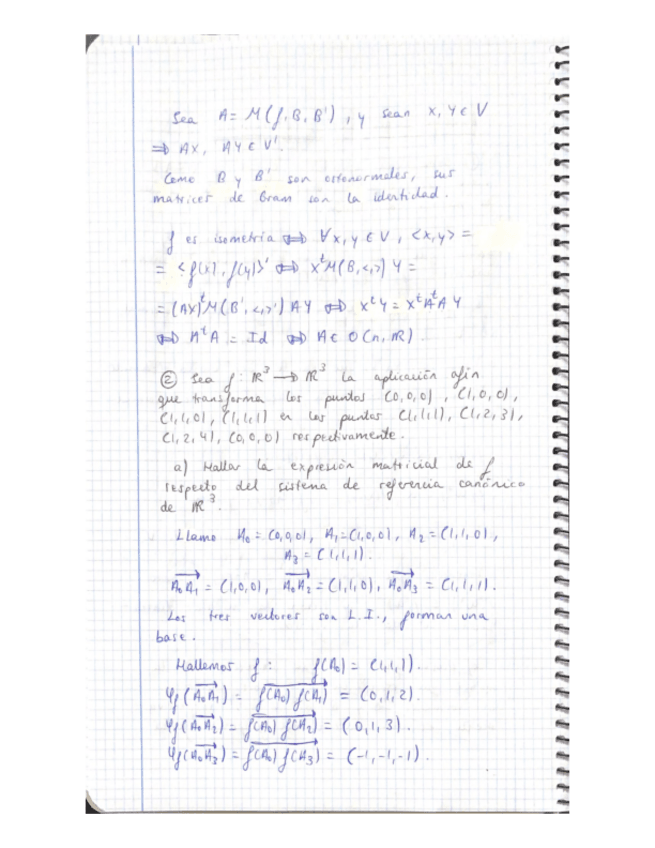 Sea A = M(f, B, B'), y sean x, y ∈ V
⇒ AX, AY ∈ V'.
Como B y B' son ortonormales, sus
matrices de Gram son la identidad.
f es isometría ⟺ ∀x, y ∈ V, <x,y> =
= <f(x), f(y)>' ⟺ X^t M(B,<,>) Y =
= (AX)^t M(B',<,>') AY ⟺ X^t Y = X^t A^t A Y
⟺ A^t A = Id ⟺ A ∈ O(n, ℝ).
② Sea f: ℝ³ → ℝ³ la aplicación afín
que transforma los puntos (0,0,0), (1,0,0),
(1,1,0), (1,1,1) en los puntos (1,1,1), (1,2,3),
(1,2,4), (0,0,0) respectivamente.
a) Hallar la expresión matricial de f
respecto del sistema de referencia canónico
de ℝ³.
Llamo A₀ = (0,0,0), A₁ = (1,0,0), A₂ = (1,1,0),
A₃ = (1,1,1).
A₀A₁ = (1,0,0), A₀A₂ = (1,1,0), A₀A₃ = (1,1,1).
Los tres vectores son L.I., forman una
base.
Hallemos f: f(A₀) = (1,1,1).
φf(A₀A₁) = f(A₀)f(A₁) = (0,1,2).
φf(A₀A₂) = f(A₀)f(A₂) = (0,1,3).
φf(A₀A₃) = f(A₀)f(A₃) = (-1,-1,-1).